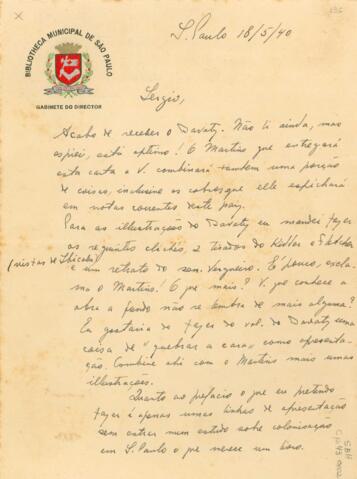 BIBLIOTHECA MUNICIPAL DE SÃO PAULO
GABINETE DO DIRECTOR
S. Paulo 18/5/40
Sergio,
Acabo de receber o Davatz. Não li ainda, mas
espiei, está optimo! O Martins que entregará
esta carta a V. combinará tambem uma porção
de coisas, inclusive os cobres que elle espichará
em notas correntes deste pay.
Para as illustrações do Davatz eu mandei fazer
os seguintes clichés, 2 tirados do Kidder e Fletcher
(vistas de Ibicaba)
e um retrato do sen. Vergueiro. É pouco, excla-
ma o Martins! E que mais? V. que conhece a
obra a fundo não se lembra de mais alguma?
Eu gostaria de fazer do vol. do Davatz uma
coisa de "quebrar a cara" como apresenta-
ção. Combine ahi com o Martins mais umas
illustrações.
Quanto ao prefacio o que eu pretendo
fazer é apenas umas linhas de apresentação
sem entrar num estudo sobre colonisação
em S. Paulo o que merece um livro.